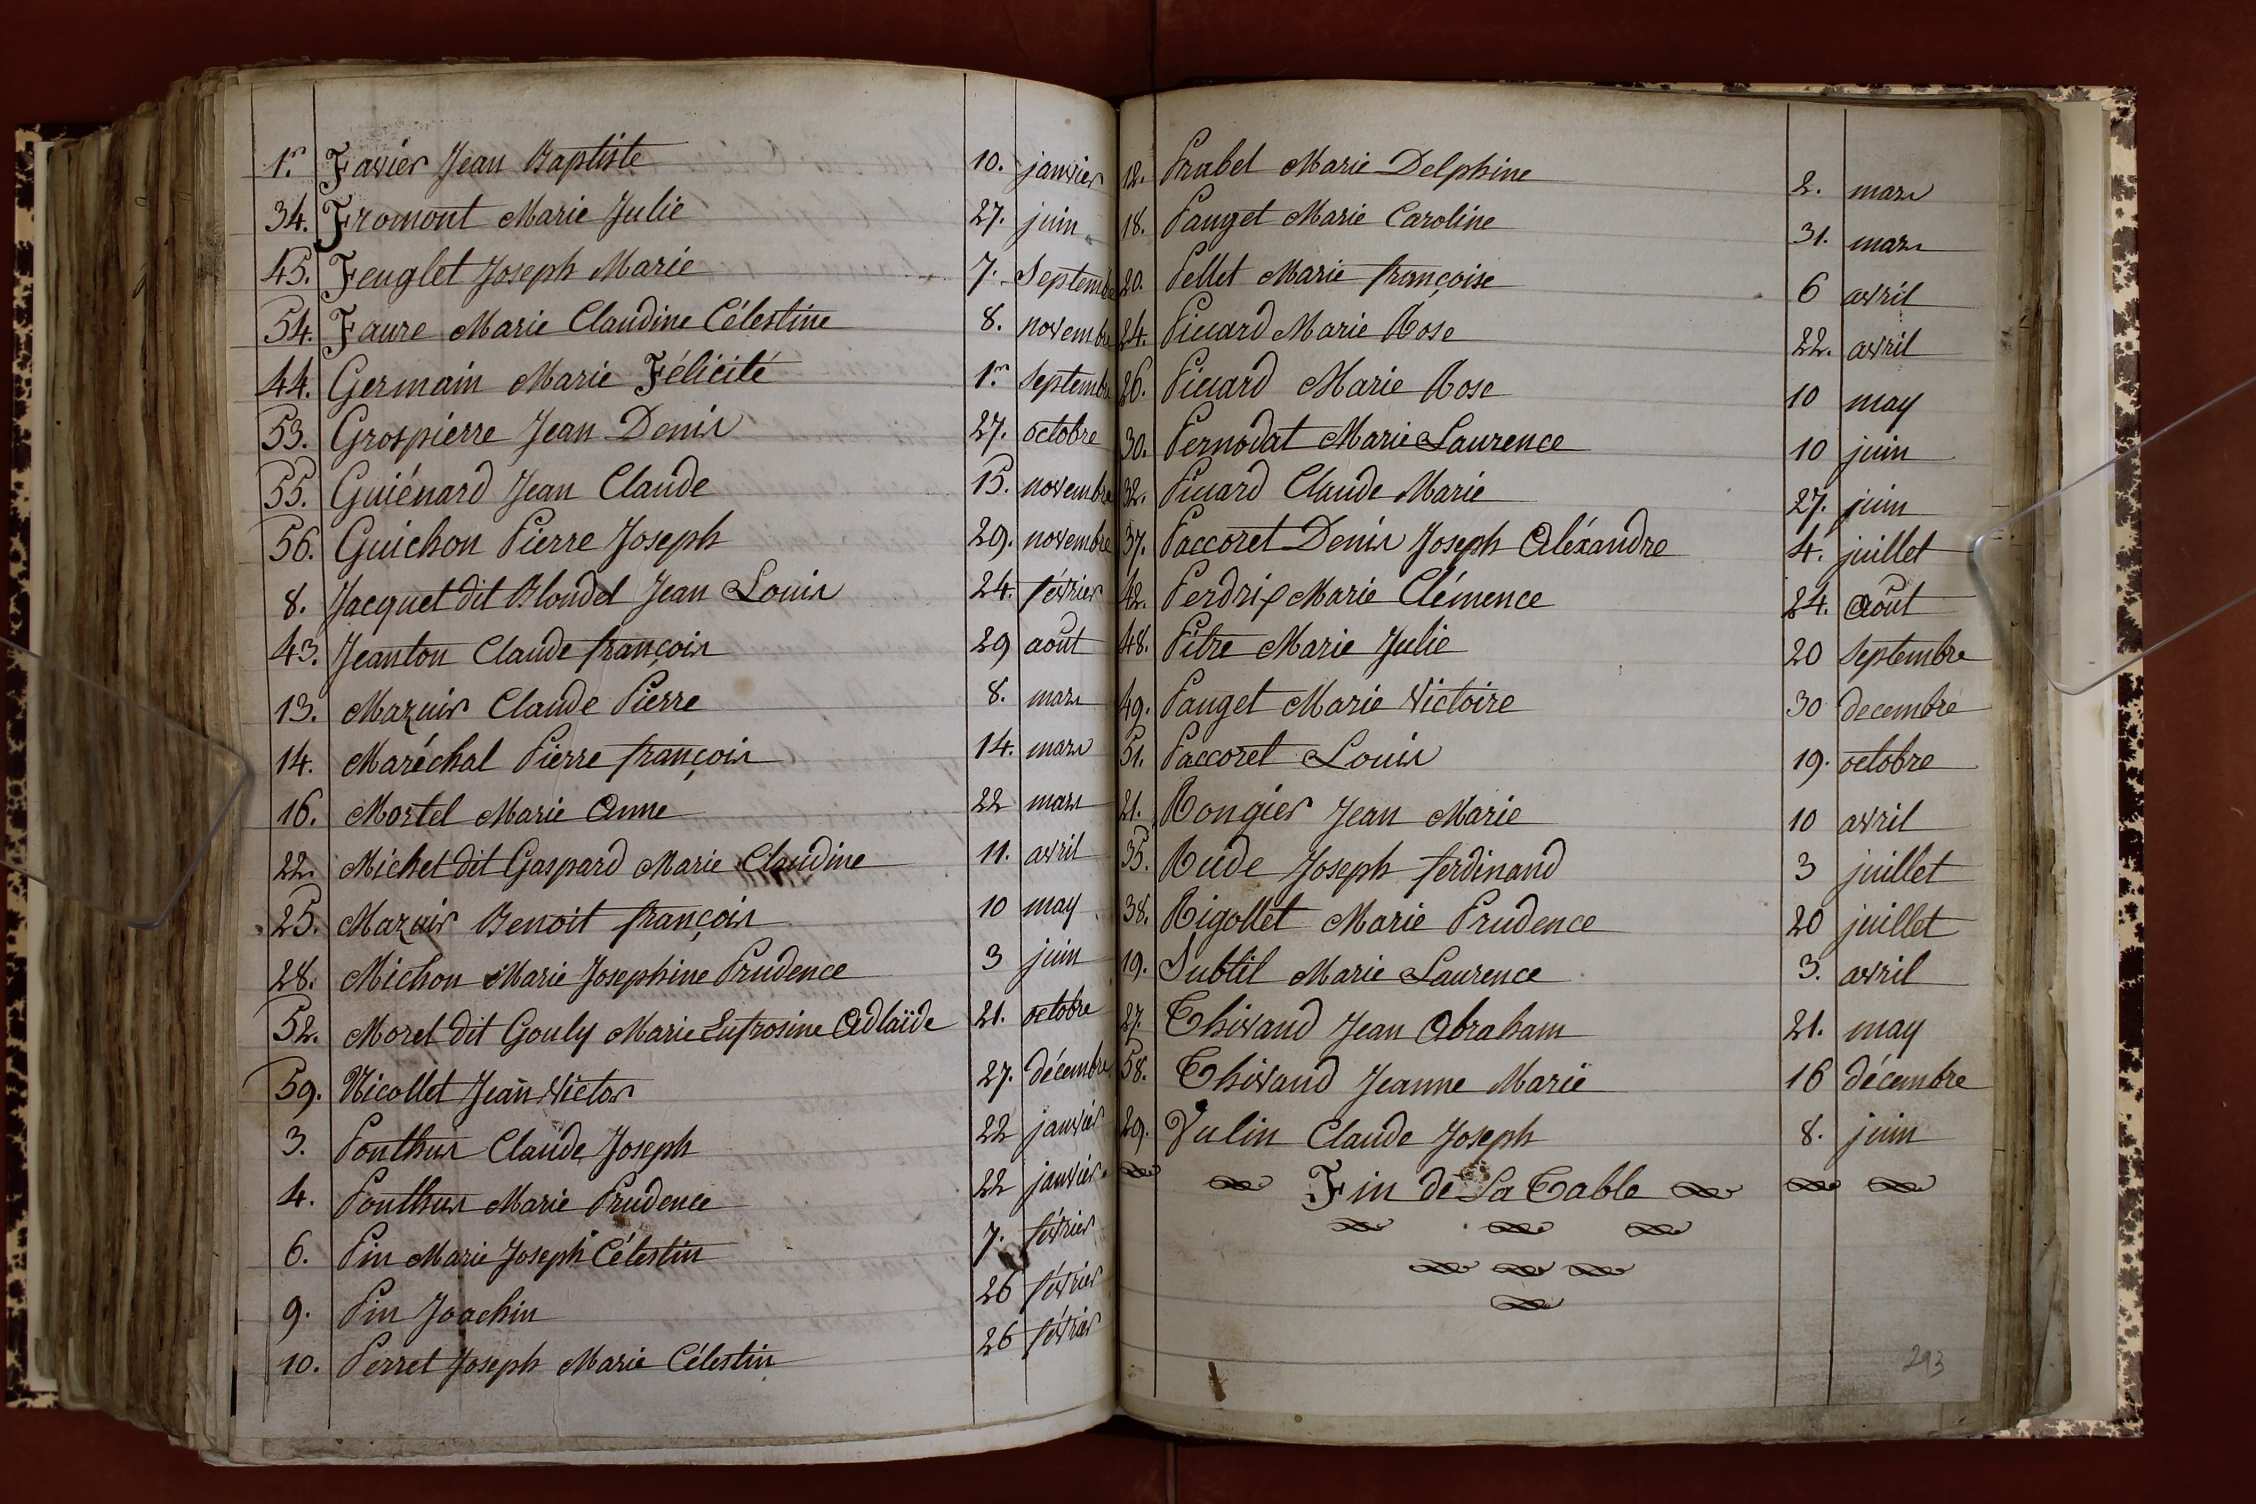 1.r Favier Jean Baptiste 10. janvier
34. Fromont Marie Julie 27. juin
45. Feuglet Joseph Marie 7. Septembre
54. Faure Marie Claudine Célestine 8. novembre
44. Germain Marie Félicité 1.r septembre
53. Grospierre Jean Denis 27. octobre
55. Guiénard Jean Claude 15. novembre
56. Guichon Pierre Joseph 29. novembre
8. Jacquet dit Blondel Jean Louis 24. février
43. Jeanton Claude françois 29 aout
13. Mazuir Claude Pierre 8. mars
14. Maréchal Pierre françois 14. mars
16. Mortel Marie Anne 22 mars
22. Michet dit Gaspard Marie Claudine 11. avril
25. Mazuir Benoit françois 10 may
28. Michon Marie Josephine Prudence 3 juin
52. Morel dit Gouly Marie Eufrosine Adlaïde 21. octobre
59. Nicollet Jean Victor 27. décembre
3. Ponthus Claude Joseph 22 janvier
4. Ponthus Marie Prudence 22 janvier
6. Pin Marie Joseph Célestin 7. février
9. Pin Joachin 26 février
10. Perret Joseph Marie Célestin 26 février
12. Prabel Marie Delphine 2. mars
18. Pauget Marie Caroline 31. mars
20. Pellet Marie françoise 6 avril
24. Piccard Marie Rose 22. avril
26. Piccard Marie Rose 10 may
30. Pernodat Marie Laurence 10 juin
32. Piccard Claude Marie 27. juin
37. Paccoret Denis Joseph Aléxandre 4. juillet
42. Perdrix Marie Clémence 24. Août
48. Pitre Marie Julie 20 septembre
49. Pauget Marie Victoire 30 decembre
51. Paccoret Louis 19. octobre
21. Rongier Jean Marie 10 avril
35. Rude Joseph ferdinand 3 juillet
38. Rigollet Marie Prudence 20 juillet
19. Subtil Marie Laurence 3. avril
27. Thivaud Jean Abraham 21. may
58. Thivaud Jeanne Marie 16 décembre
29. Vulin Claude Joseph 8. juin
Fin de La Table
293